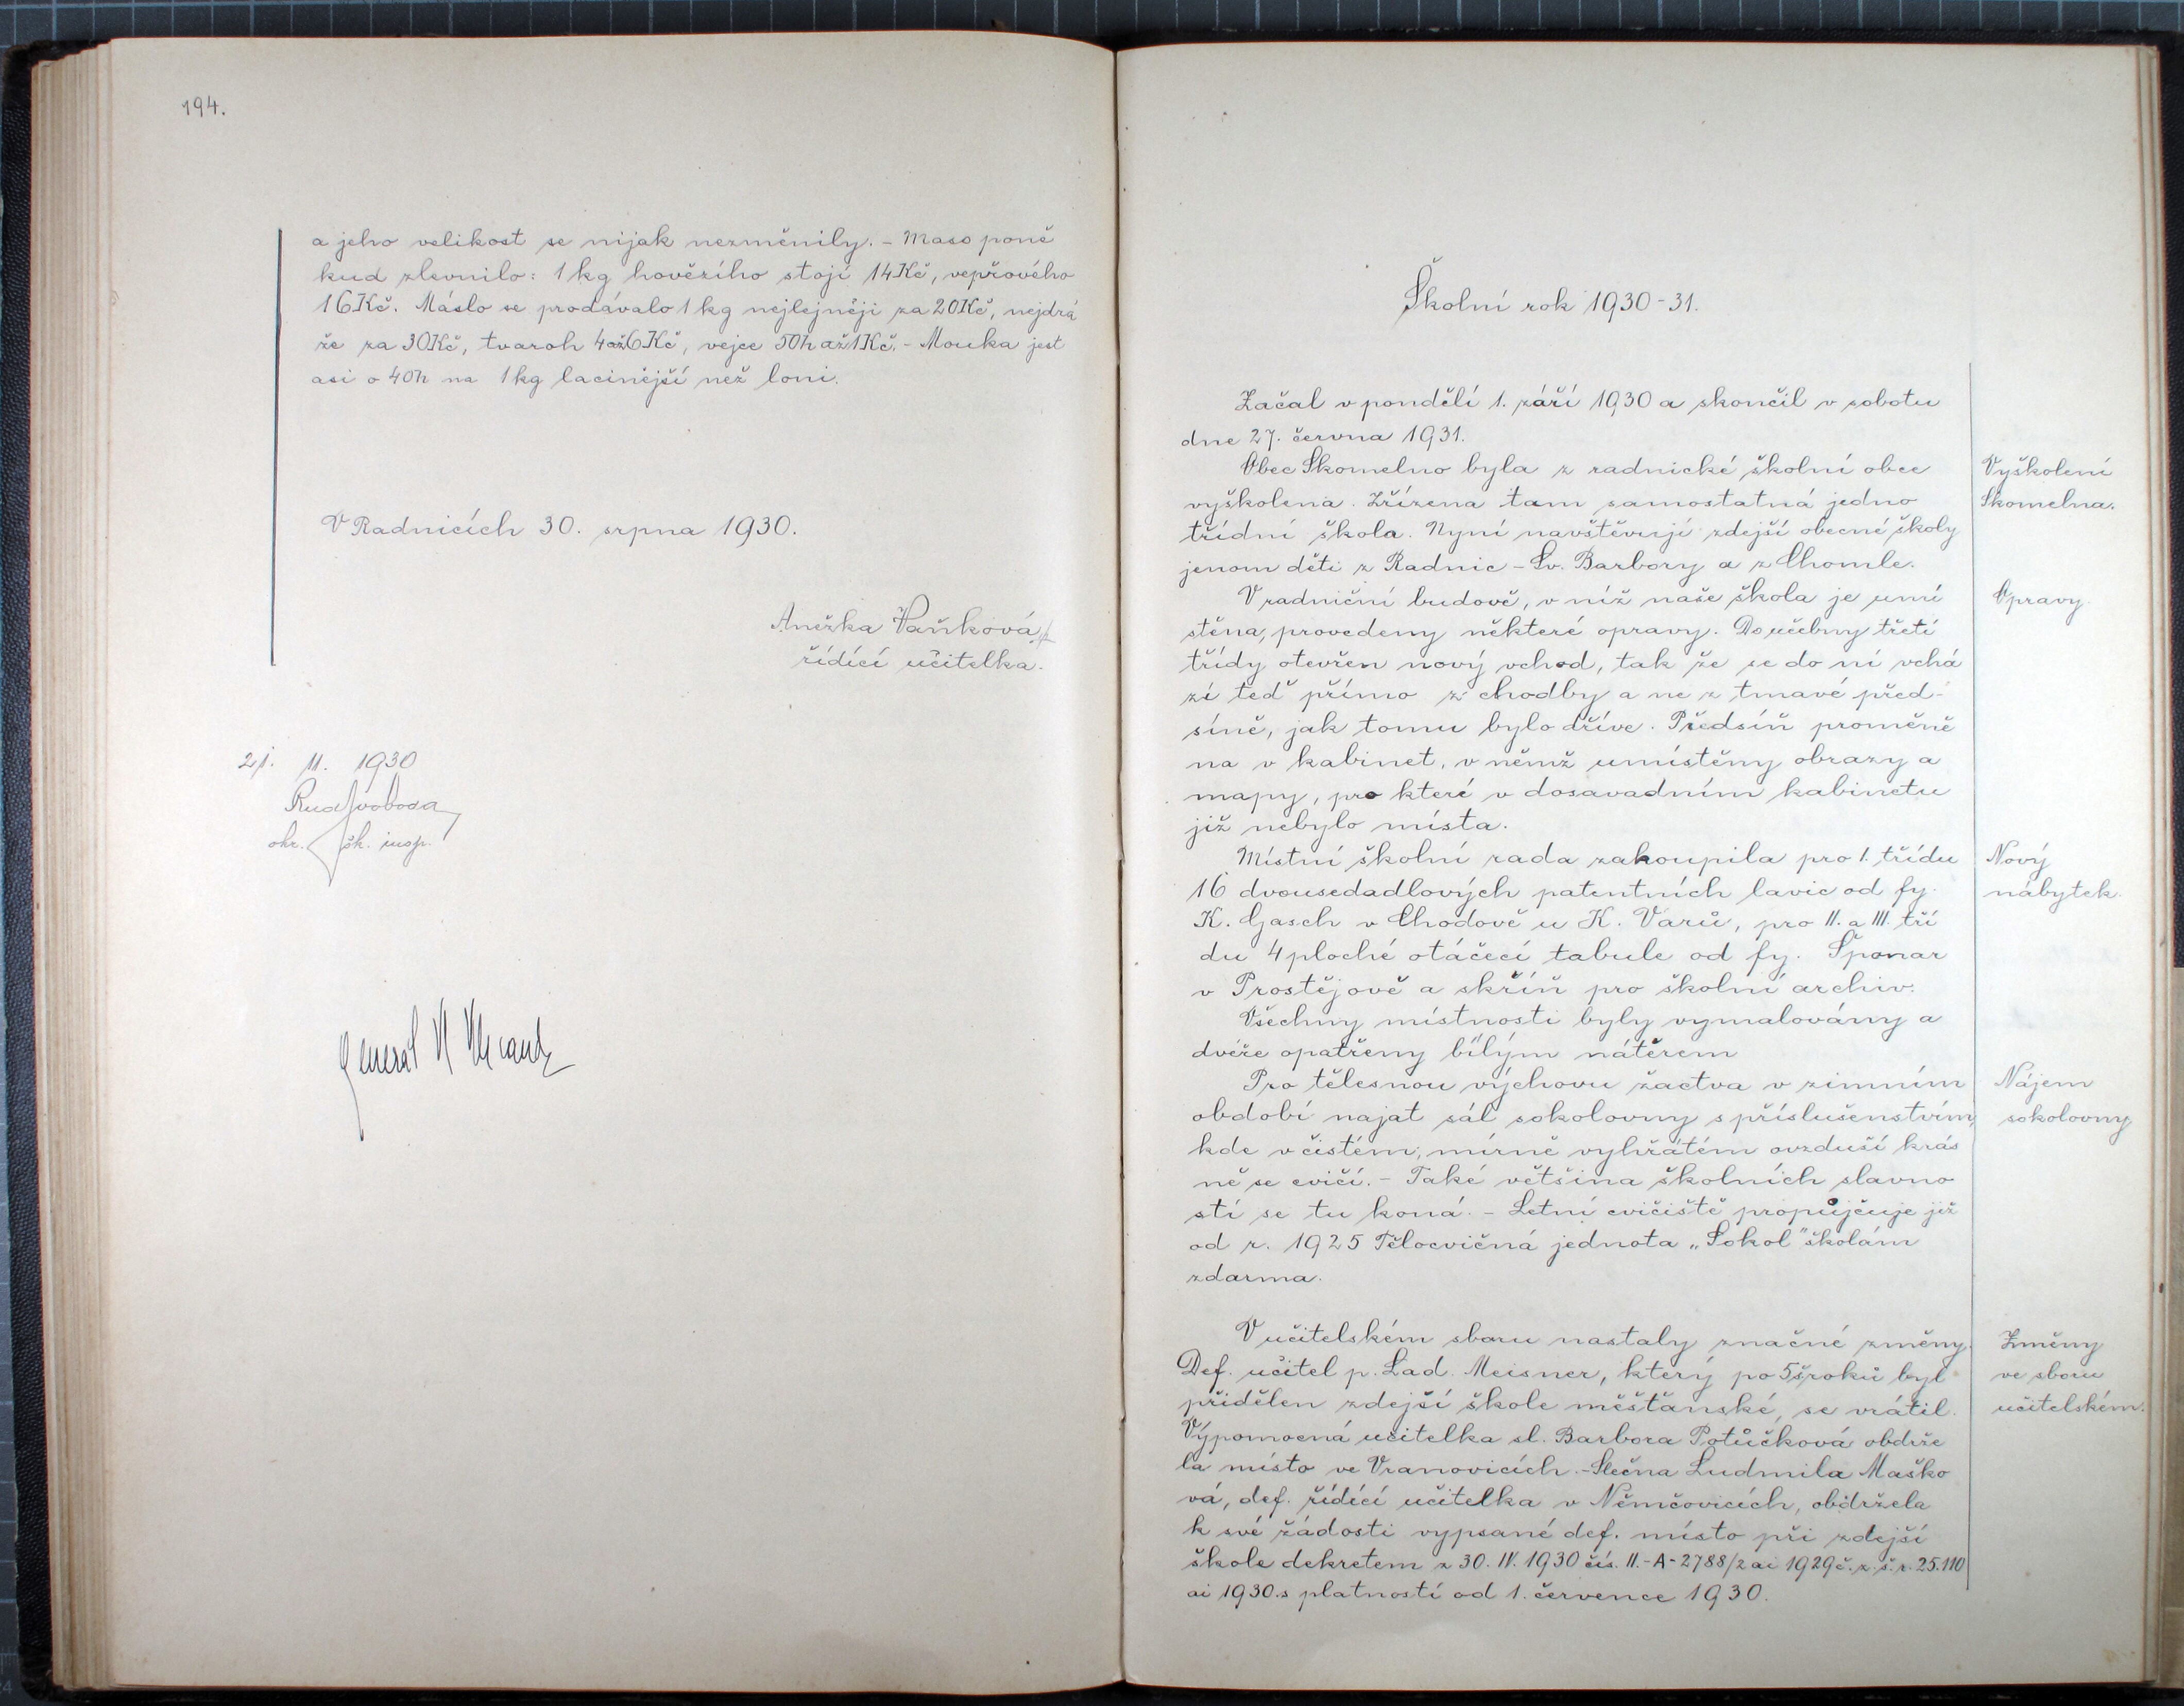 194.
a jeho velikost se nijak nezměnily. - Maso poně
kud zlevnilo: 1 kg hovězího stojí 14 Kč, vepřového
16 Kč. Máslo se prodávalo 1 kg nejlejněji za 20 Kč, nejdrá
že za 30 Kč, tvaroh 4 až 6 Kč, vejce 50 h až 1 Kč. - Mouka jest
asi o 40 h na 1 kg lacinější než loni.
V Radnicích 30. srpna 1930.
Anežka Vaňková
řídící učitelka.
21. 11. 1930
Rud Svoboda
okr. šk. insp.
General
Školní rok 1930-31.
Začal v pondělí 1. září 1930 a skončil v sobotu
dne 27. června 1931.
Obec Skomelno byla z radnické školní obce
vyškolena. Zřízena tam samostatná jedno
třídní škola. Nyní navštěvují zdejší obecné školy
jenom děti z Radnic - Sv. Barbory a z Chomle.
Vyškolení
Skomelna.
V radniční budově, v níž naše škola je umí
stěna, provedeny některé opravy. Do učebny třetí
třídy otevřen nový vchod, tak že se do ní vchá
zí teď přímo z chodby a ne z tmavé před-
síně, jak tomu bylo dříve. Předsíň proměně
na v kabinet, v němž umístěny obrazy a
mapy, pro které v dosavadním kabinetu
již nebylo místa.
Opravy.
Místní školní rada zakoupila pro 1. třídu
16 dvousedadlových patentních lavic od fy.
K. Gasch v Chodově u K. Varů, pro II. a III. tří
du 4 ploché otáčecí tabule od fy. Šponar
v Prostějově a skříň pro školní archiv.
Všechny místnosti byly vymalovány a
dvéře opatřeny bílým nátěrem
Nový
nábytek.
Pro tělesnou výchovu žactva v zimním
období najat sál sokolovny s příslušenstvím,
kde v čistém, mírně vyhřátém ovzduší krás
ně se cvičí. - Také většina školních slavno
stí se tu koná. - Letní cvičiště propůjčuje již
od r. 1925 Tělocvičná jednota „Sokol" školám
zdarma.
Nájem
sokolovny
V učitelském sboru nastaly značné změny.
Def. učitel p. Lad. Meisner, který po 5 šk. roků byl
přidělen zdejší škole měšťanské, se vrátil.
Výpomocná učitelka sl. Barbora Potůčková obdrže
la místo ve Vranovicích. - Slečna Ludmila Maško
vá, def. řídící učitelka v Němčovicích, obdržela
k své žádosti vypsané def. místo při zdejší
škole dekretem z 30. IV. 1930 čís. II.-A-2788/2 ai 1929 č. z. š. r. 25.110
ai 1930.s platností od 1. července 1930.
Změny
ve sboru
učitelském.